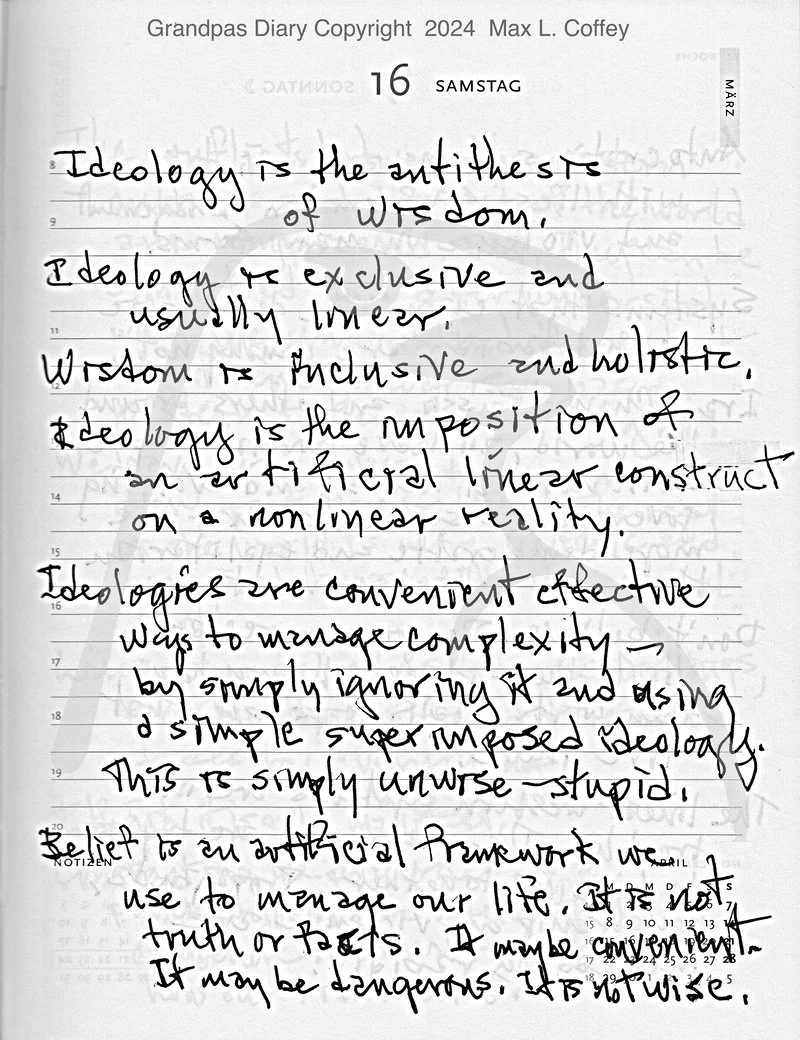 Grandpas Diary Copyright 2024 Max L. Coffey
16 SAMSTAG
MÄRZ
Ideology is the antithesis
of wisdom.
Ideology is exclusive and
usually linear.
Wisdom is inclusive and holistic.
Ideology is the imposition of
an artificial linear construct
on a nonlinear reality.
Ideologies are convenient effective
ways to manage complexity —
by simply ignoring it and using
a simple superimposed ideology.
This is simply unwise — stupid.
Belief is an artificial framework we
NOTIZEN
APRIL
use to manage our life. It is not
truth or facts. It maybe convenient.
It may be dangerous. It is not wise.